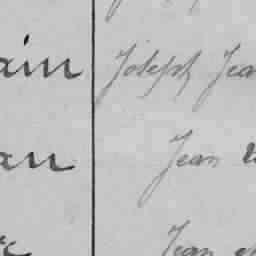 ain Joseph Jea
an Jean
Jean